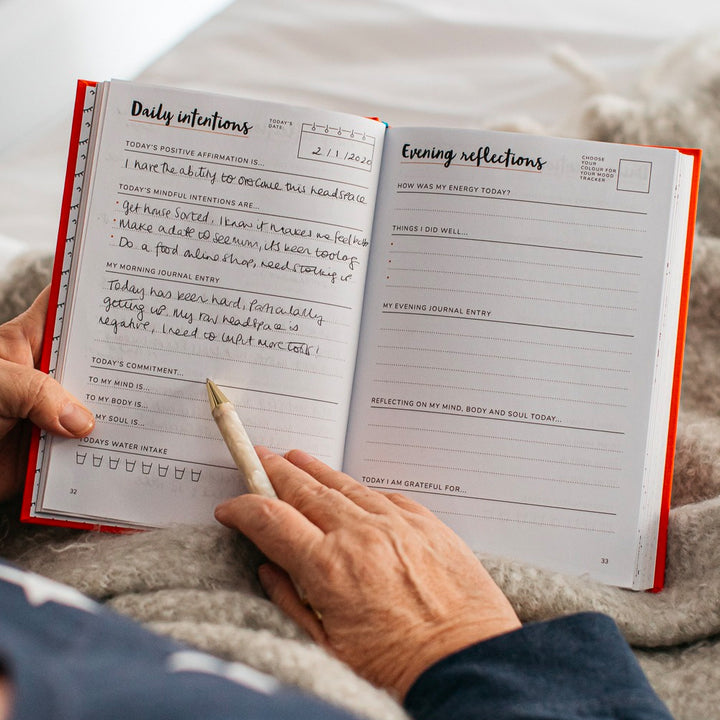 Daily intentions
TODAY'S DATE:
2/1/2020
TODAY'S POSITIVE AFFIRMATION IS...
I have the ability to overcome this headspace
TODAY'S MINDFUL INTENTIONS ARE...
• get house sorted, I know it makes me feel better
• Make a date to see mum, its been too long
• Do a food online shop, need stocking up
MY MORNING JOURNAL ENTRY
Today has been hard, Particularly
getting up. My raw headspace is
negative, I need to input more tools!
TODAY'S COMMITMENT...
TO MY MIND IS...
TO MY BODY IS...
MY SOUL IS...
TODAYS WATER INTAKE
32
Evening reflections
CHOOSE YOUR COLOUR FOR YOUR MOOD TRACKER
HOW WAS MY ENERGY TODAY?
THINGS I DID WELL...
MY EVENING JOURNAL ENTRY
REFLECTING ON MY MIND, BODY AND SOUL TODAY...
TODAY I AM GRATEFUL FOR...
33